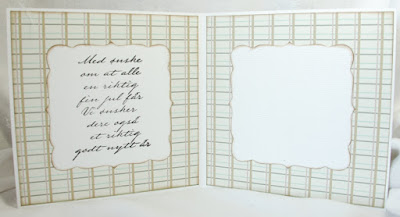 Med ønske
om at alle
en riktig
fin jul får
Vi ønsker
dere også
et riktig
godt nytt år